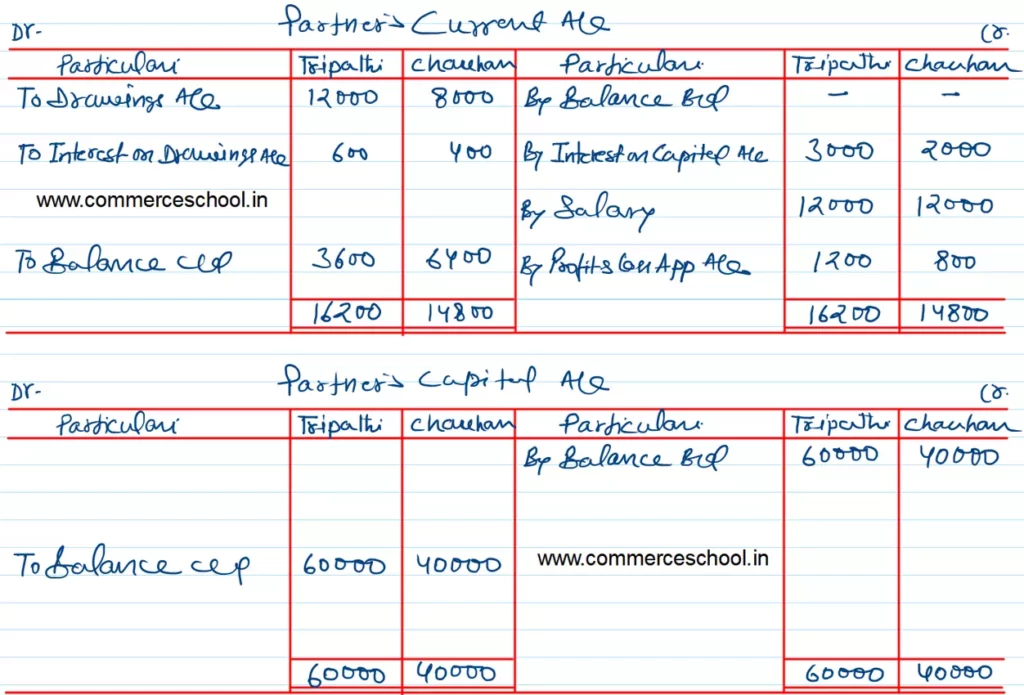 Partner's Current A/c
Dr. Cr.
Particulars Tripathi Chauhan Particulars Tripathi Chauhan
To Drawings A/c 12000 8000 By Balance B/d - -
To Interest on Drawings A/c 600 400 By Interest on Capital A/c 3000 2000
www.commerceschool.in
By Salary 12000 12000
To Balance c/d 3600 6400 By Profit & loss App A/c 1200 800
16200 14800 16200 14800
Partner's Capital A/c
Dr. Cr.
Particulars Tripathi Chauhan Particulars Tripathi Chauhan
By Balance B/d 60000 40000
To Balance c/d 60000 40000 www.commerceschool.in
60000 40000 60000 40000